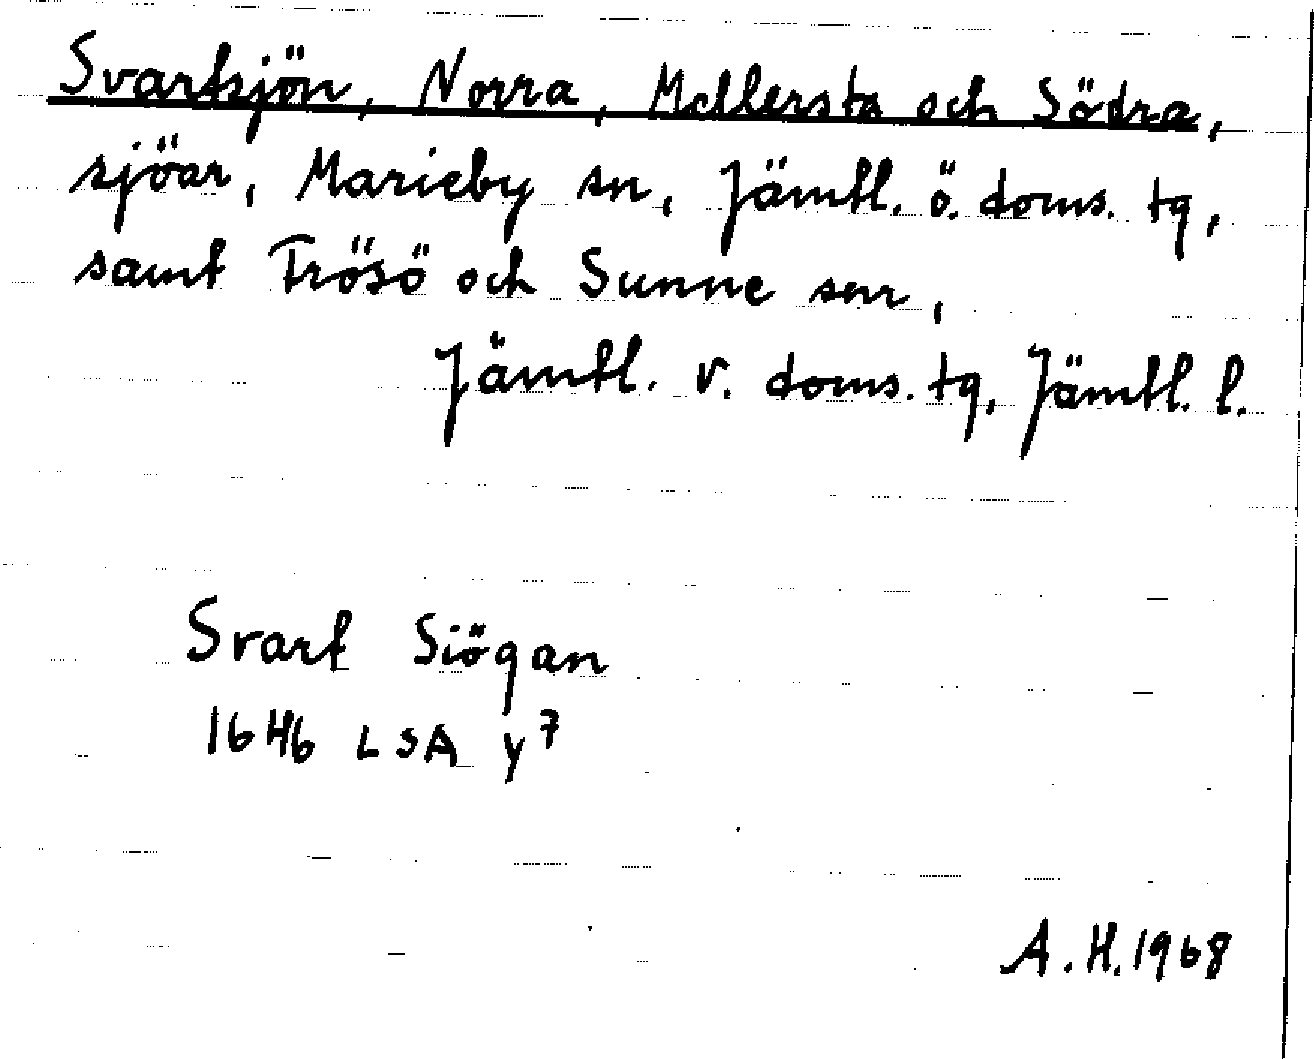 Svartsjön, Norra, Mellersta och Södra,
sjöar, Marieby sn, Jämtl. ö. doms. tg,
samt Frösö och Sunne snr,
Jämtl. v. doms. tg, Jämtl. l.
Svart Siögan
1646 LSA y⁷
A.H. 1968